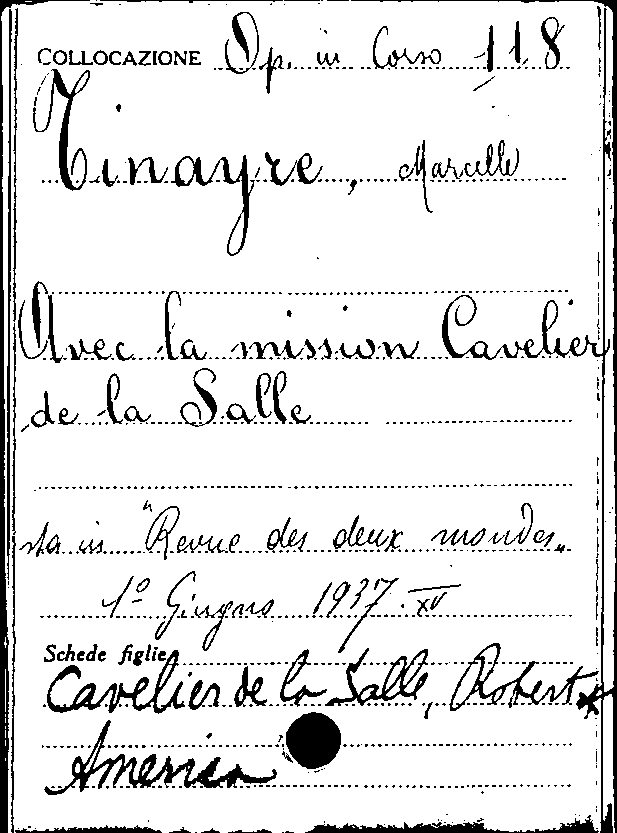 COLLOCAZIONE Op. in Corso 118
Tinayre, Marcelle
Avec la mission Cavelier
de la Salle
sta in "Revue des deux mondes„
1º Giugno 1937.XV
Schede figlie
Cavelier de la Salle, Robert *
America